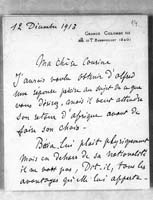 12 Décembre 1913
GEORGE COLOMBE
Ma chère Cousine
J'aurais voulu obtenir d'Alfred
une réponse précise au sujet de ce que
vous désirez, mais il veut attendre
son retour d'Afrique avant de
faire son choix.
lui plaît physiquement
mais en dehors de sa nationalité
il ne voit pas, dit-il, tous les
avantages qu'elle lui apporte